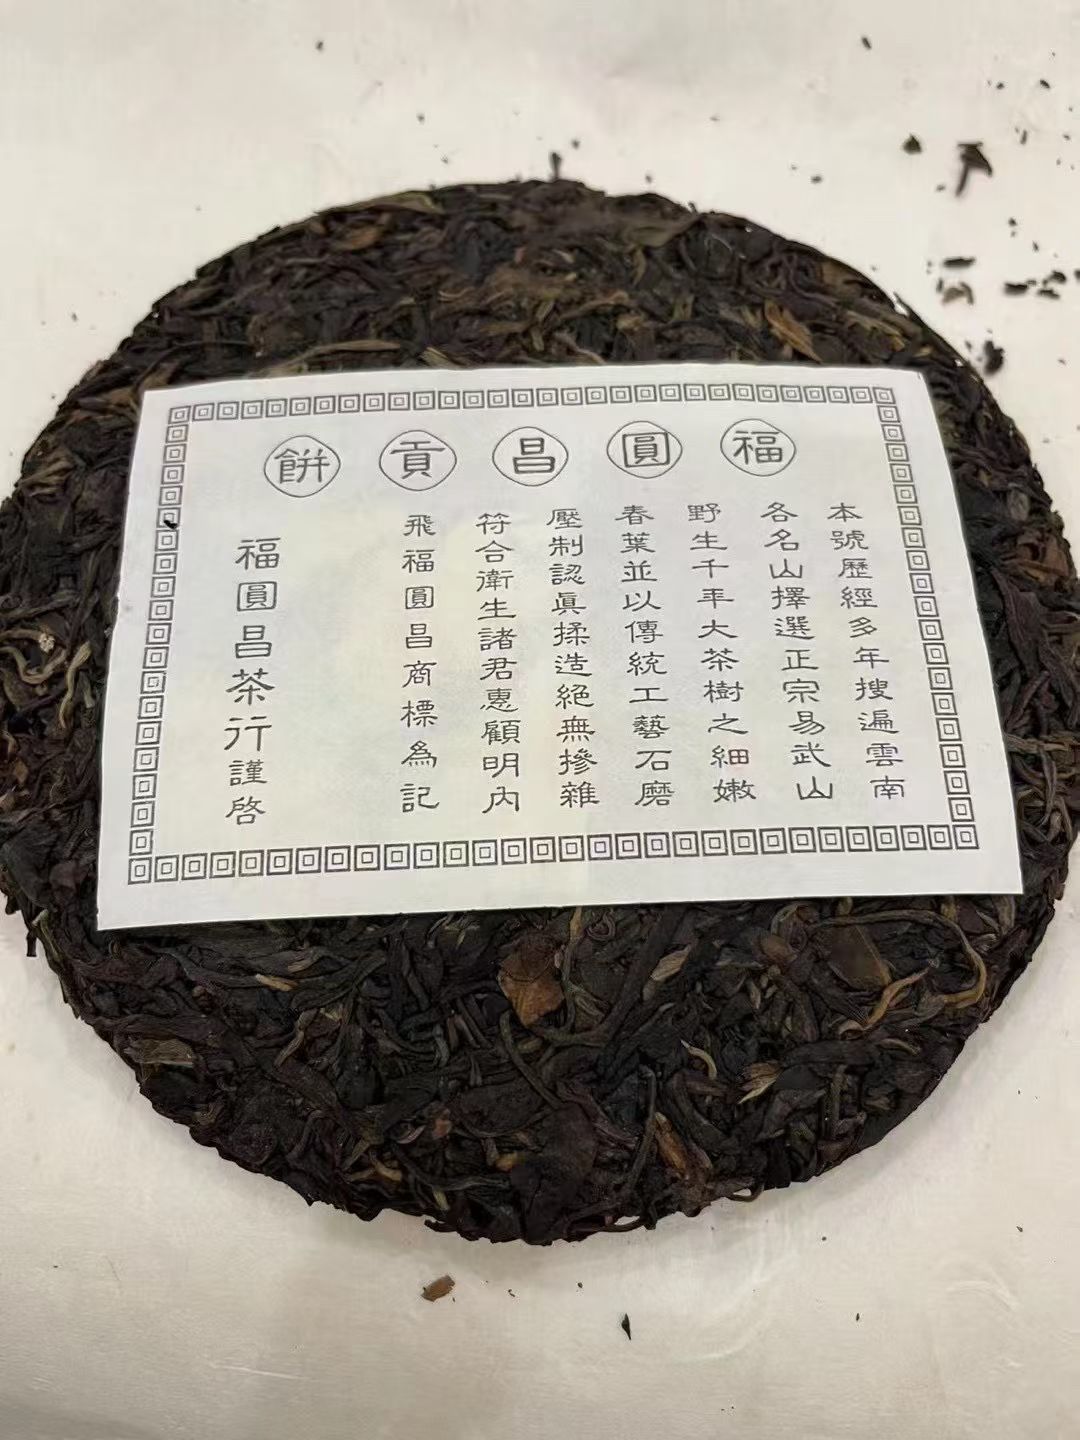 福圓昌貢餅
本號歷經多年搜遍雲南
各名山擇選正宗易武山
野生千年大茶樹之細嫩
春葉並以傳統工藝石磨
壓制認眞揉造絕無摻雜
符合衛生諸君惠顧明內
飛福圓昌商標為記
福圓昌茶行謹啓